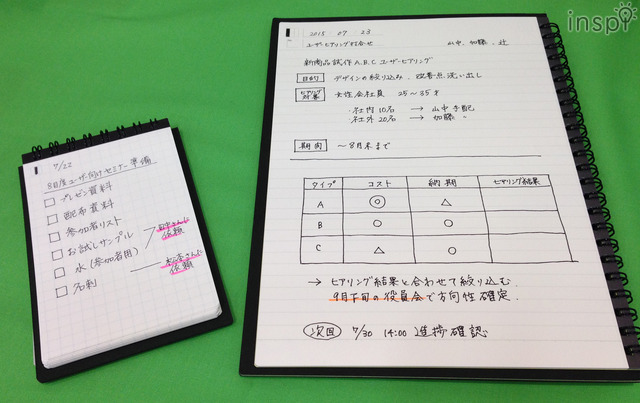 inspi
7/22
8月度ユーザー向けセミナー準備
プレゼン資料
配布資料
参加者リスト
お試しサンプル
水(参加者用)
名刺
依頼
依頼
2015 07 23
ユーザーヒアリング打合せ 山中、加藤、辻
新商品試作A.B.Cユーザーヒアリング
目的 デザインの絞り込み、改善点洗い出し
ヒアリング対象 女性会社員 25〜35才
社内10名 → 山中手配
社外20名 → 加藤 〃
期間 〜8月末まで
タイプ コスト 納期 ヒアリング結果
A ◎ △
B ○ ○
C △ ○
→ ヒアリング結果と合わせて絞り込む
9月下旬の役員会で方向性確定.
次回 7/30 14:00 進捗確認